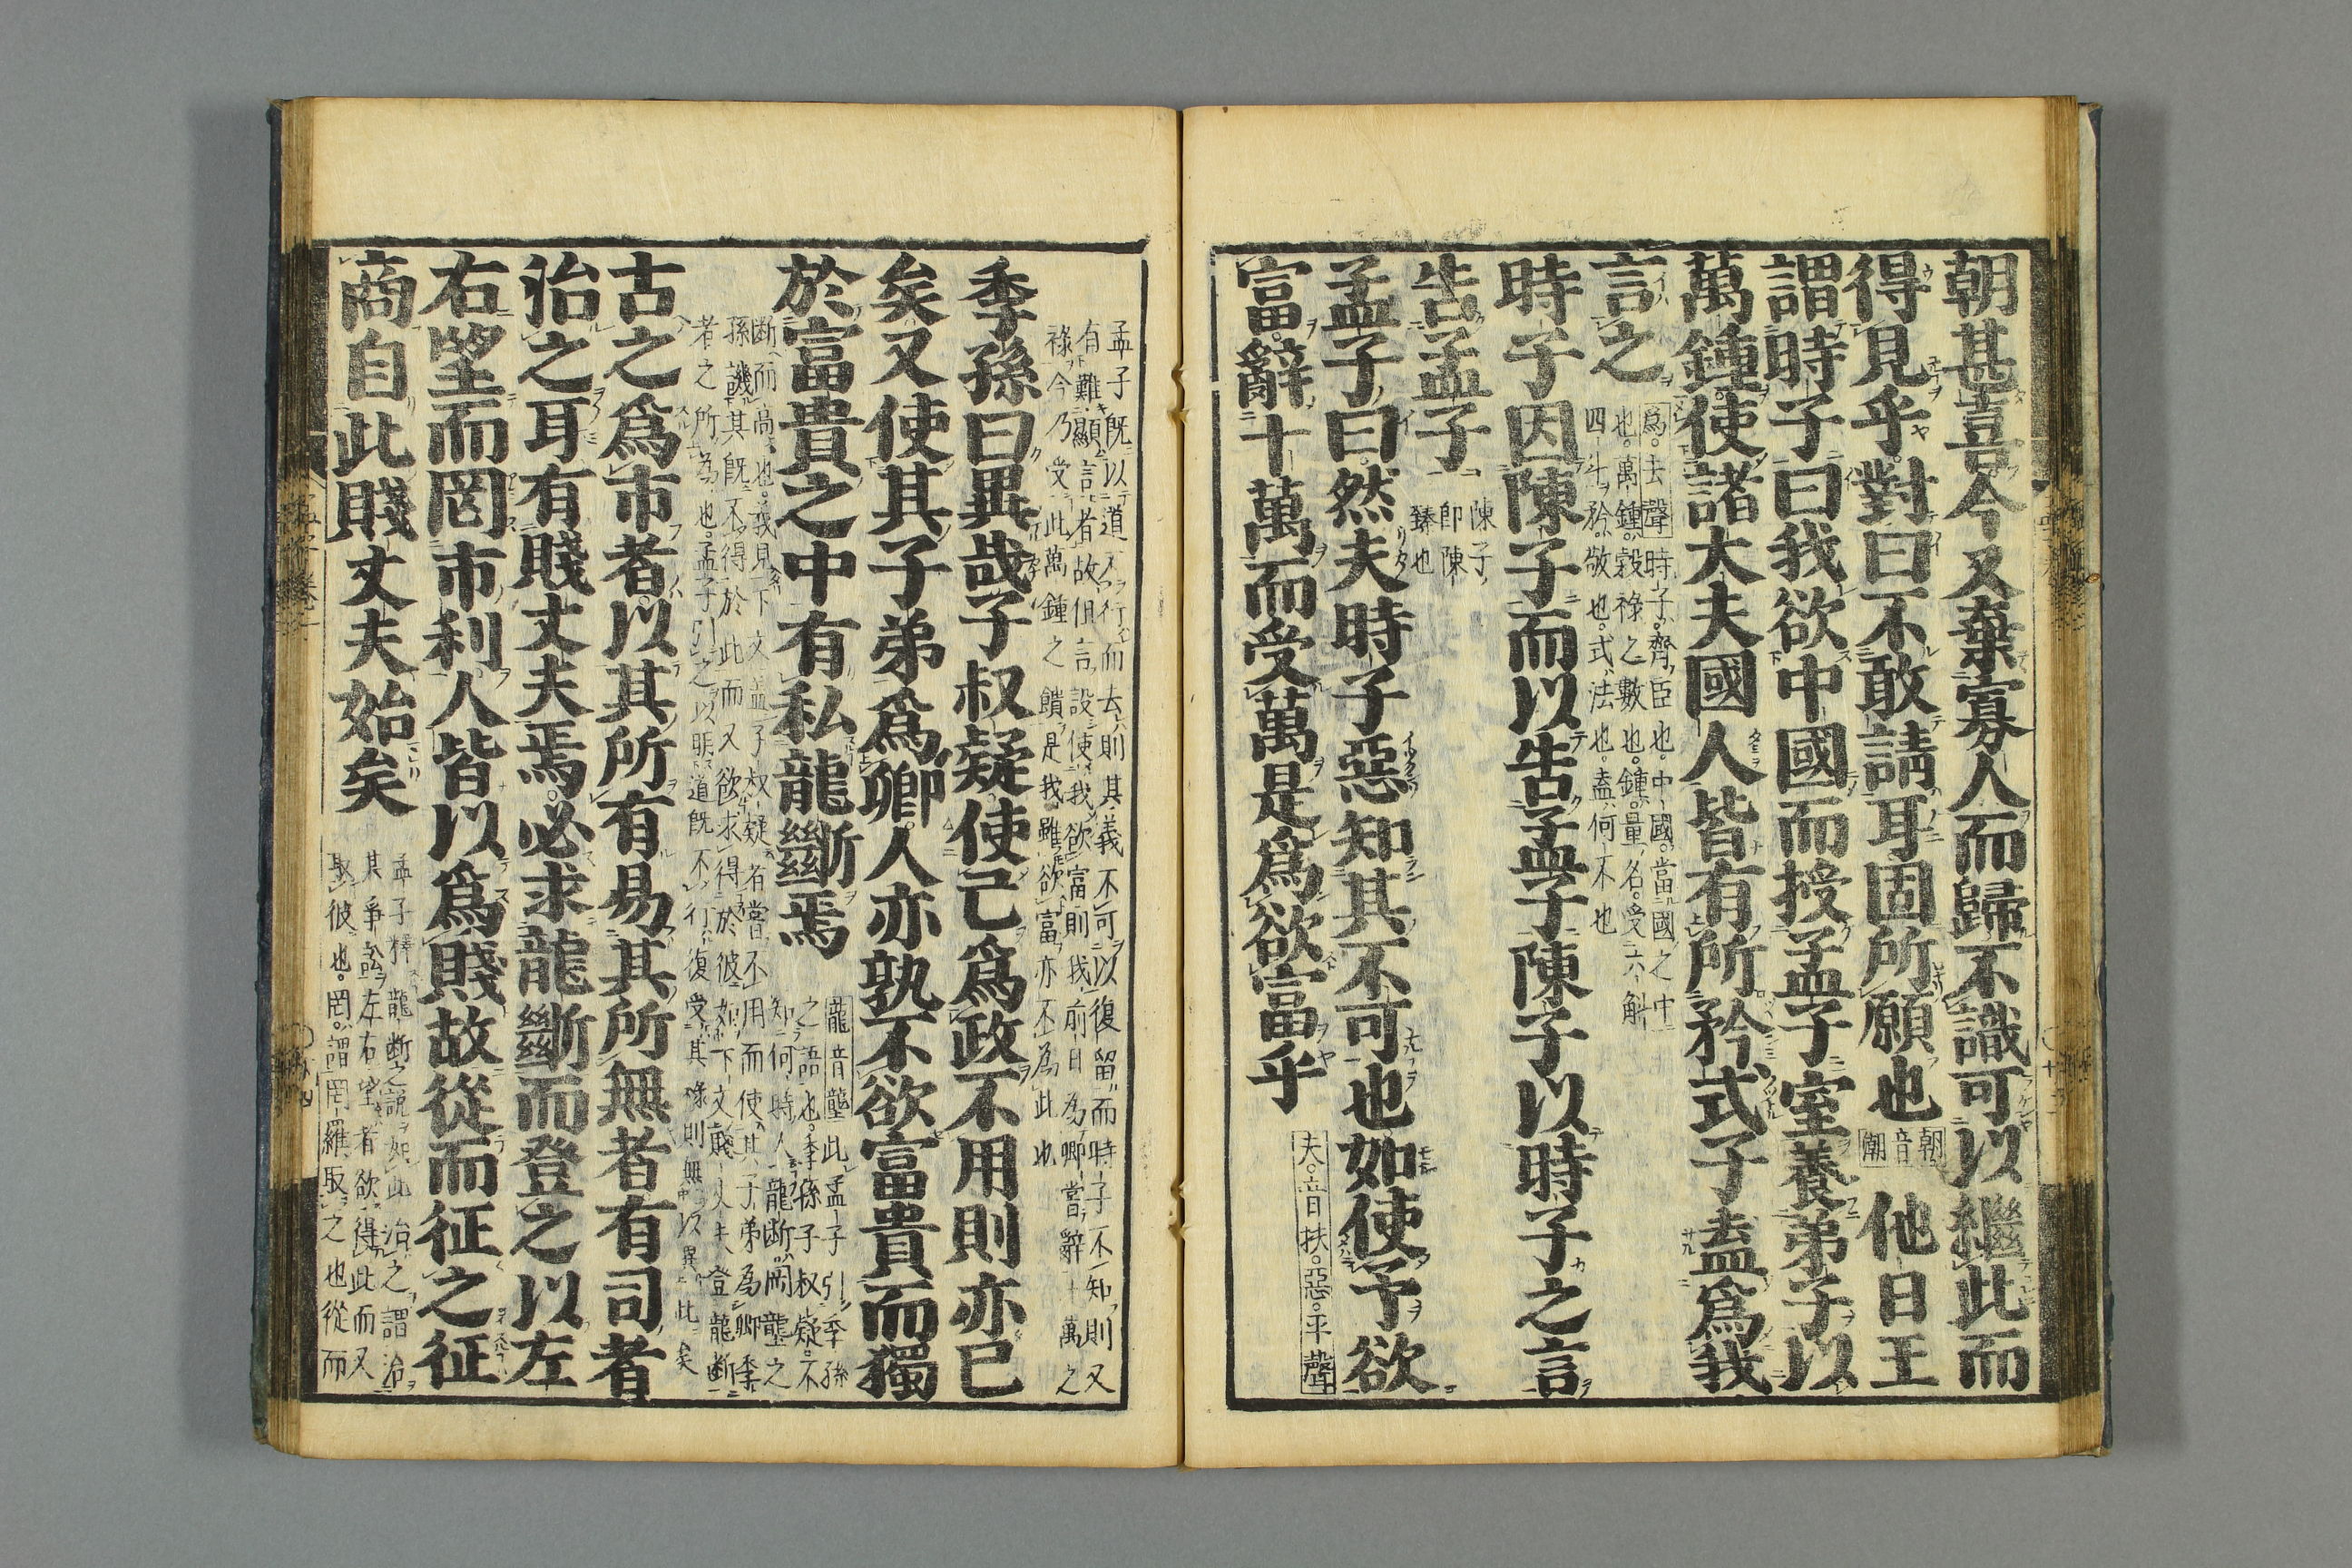 朝甚喜今又棄寡人而歸不識可以繼此而
得見乎對曰不敢請耳固所願也
朝
音
潮
他日王
謂時子曰我欲中國而授孟子室養弟子以
萬鍾使諸大夫國人皆有所矜式子盍爲我
言之
爲去聲時子齊臣也中國當國之中
也萬鍾穀祿之數也鍾量名受六斛
四斗矜敬也式法也盍何不也
時子因陳子而以告孟子陳子以時子之言
告孟子
陳子
即陳
臻也
孟子曰然夫時子惡知其不可也如使予欲
富辭十萬而受萬是爲欲富乎
夫音扶惡平聲
孟子既以道不行而去則其義不可以復留而時子不知則又
有難顯言者故但言設使我欲富則我前日為卿嘗辭十萬之
祿今乃受此萬鍾之饋是我雖欲富亦不為此也
季孫曰異哉子叔疑使己爲政不用則亦已
矣又使其子弟爲卿人亦孰不欲富貴而獨
於富貴之中有私龍斷焉
龍音壟此孟子引季孫
之語也季孫子叔疑不
知何時人龍斷岡壟之
断而高也義見下文蓋子叔疑者嘗不用而使其子弟為卿季
孫譏其既不得於此而又欲求得於彼如下文賤丈夫登龍断
者之所為也孟子引之以明道既不行復受其祿則無以異此矣
古之爲市者以其所有易其所無者有司者
治之耳有賤丈夫焉必求龍斷而登之以左
右望而罔市利人皆以爲賤故從而征之征
商自此賤丈夫始矣
孟子釋龍断之説如此治之謂治
其爭訟左右望者欲得此而又
取彼也罔謂罔羅取之也從而